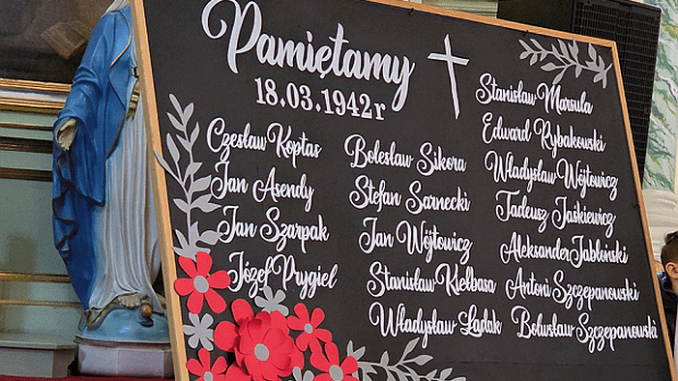 Pamiętamy
18.03.1942r
Czesław Koptas
Jan Asendy
Jan Szarpak
Józef Prygiel
Bolesław Sikora
Stefan Sarnecki
Jan Wójtowicz
Stanisław Kiełbasa
Władysław Lądak
Stanisław Marsula
Edward Rybakowski
Władysław Wójtowicz
Tadeusz Jaśkiewicz
Aleksander Jabłoński
Antoni Szczepanowski
Bolwsław Szczepanowski